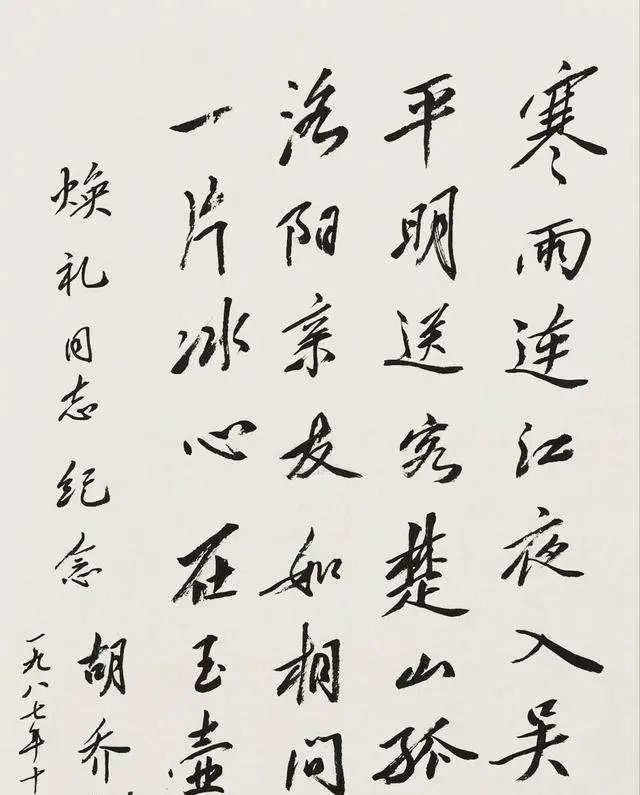 寒雨连江夜入吴
平明送客楚山孤
洛阳亲友如相问
一片冰心在玉壶
焕礼同志纪念
胡乔
一九八七年十